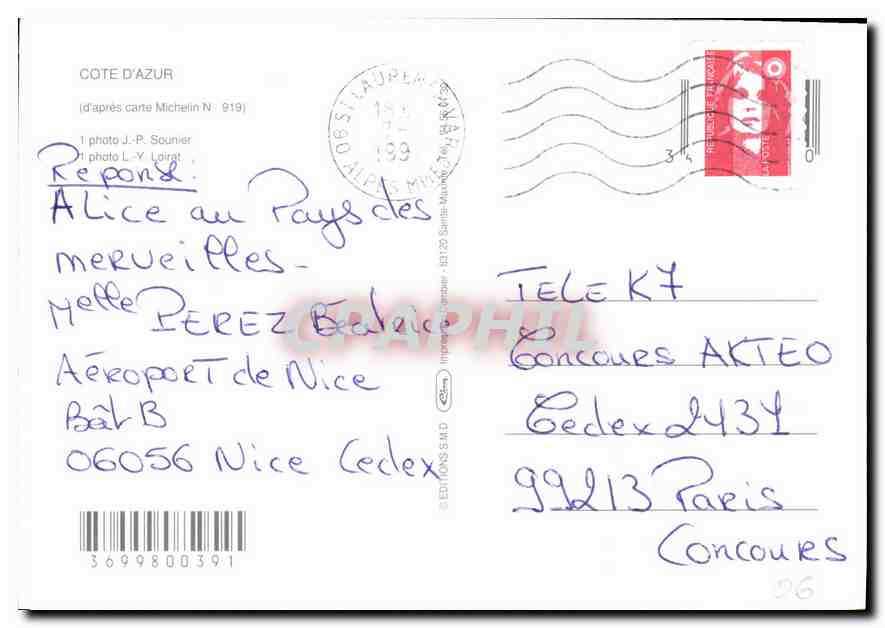 COTE D'AZUR
(d'après carte Michelin N° 919)
1 photo J.-P. Sounier
1 photo L.-Y. Loirat
Réponse:
Alice au Pays des
merveilles -
Melle PEREZ Béatrice
Aéroport de Nice
Bât B
06056 Nice Cedex
3699800391
© EDITIONS S.M.D
Cim
Imprimerie Combier - 83120 Sainte-Maxime
06 ST LAURENT DU VAR
ALPES MMES
199
REPUBLIQUE FRANCAISE
LA POSTE
34 0
TELE K7
Concours AKTEO
Cedex 2431
99213 Paris
Concours
06
CPAPHIL